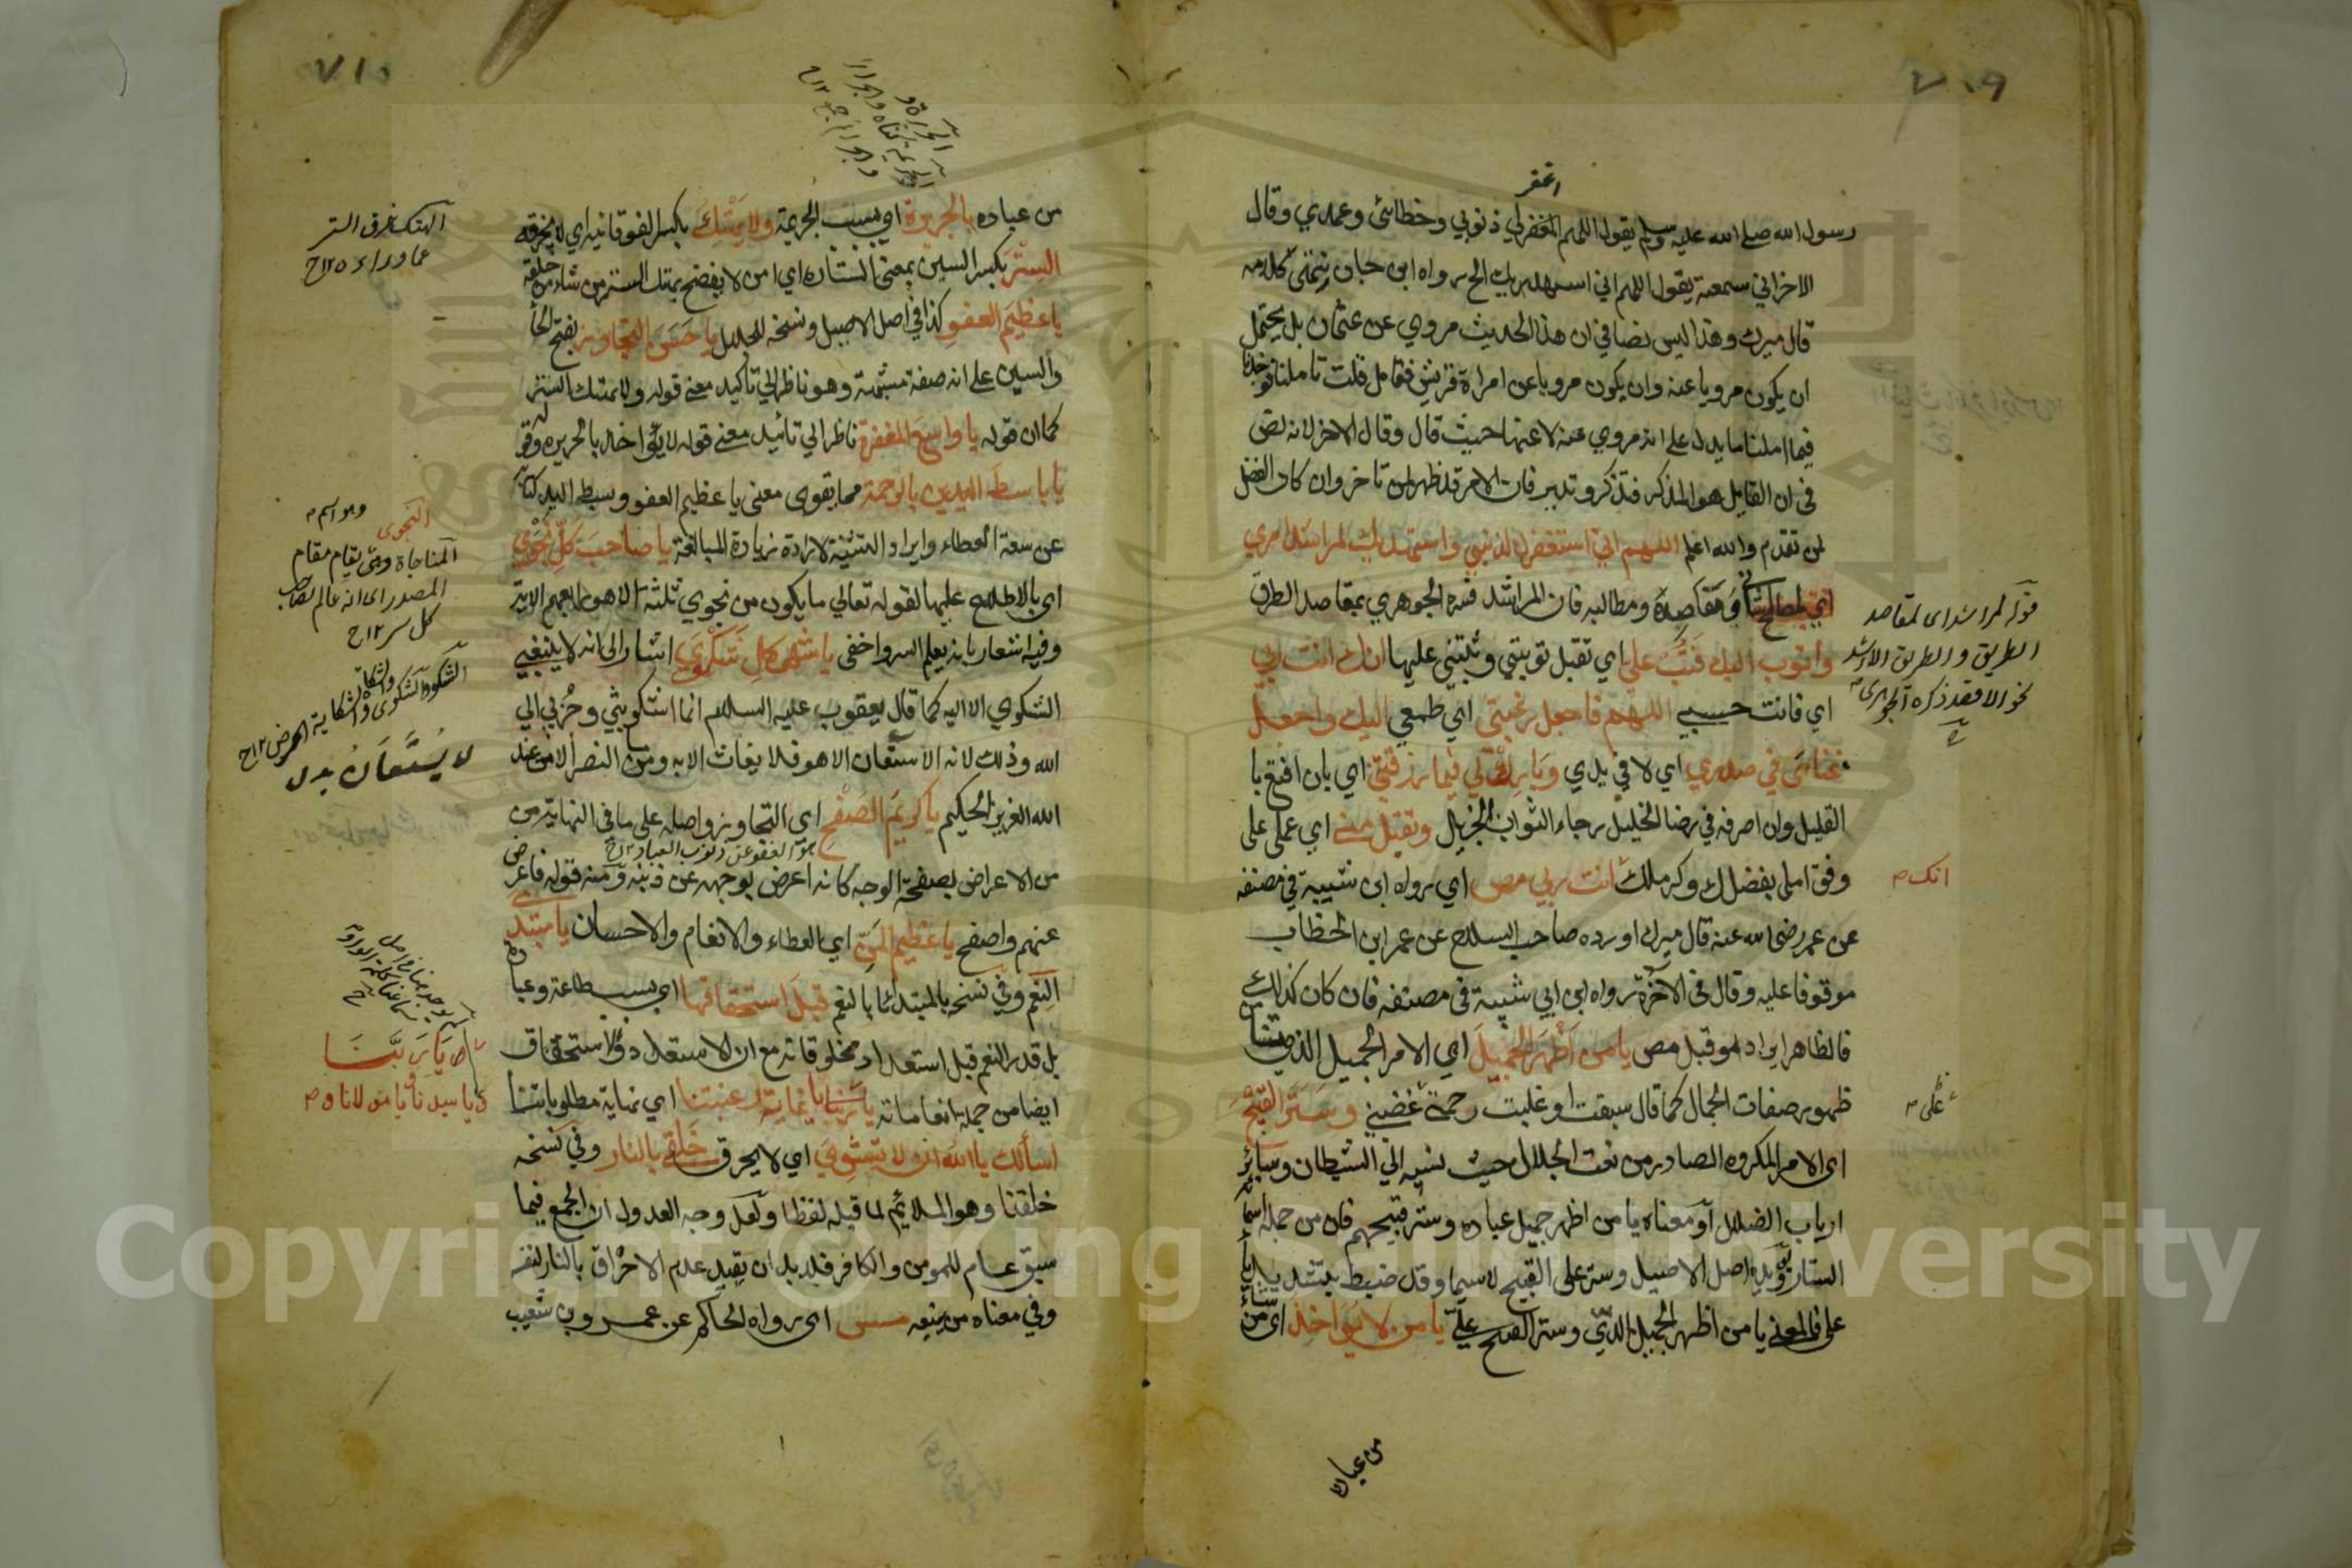 ٧٠٩
اغفر
رسول الله صلى الله عليه وسلم يقول اللهم اغفر لي ذنوبي وخطائي وعمدي وقال
الاخر اني سمعته يقول اللهم اني استهديك الخ رواه ابن حبان انتهى كلامه
قال ميرك وهذا ليس نصا في ان هذا الحديث مروي عن عثمان بل يحتمل
ان يكون مرويا عنه وان يكون مرويا عن امراة قريش فتامل قلت تاملنا فوجدنا
فيما املنا ما يدل على انه مروي عنه لا عنها حيث قال وقال الاخر لانه نص
في ان القايل هو المذكر فتذكر وتدبر فان الامر قد ظهر لمن تاخر وان كان الفضل
لمن تقدم والله اعلم اللهم اني استغفرك لذنبي واستهديك لمراشد امري
اي لمصالح شاني ومقاصده ومطالبه فان المراشد فسره الجوهري بمقاصد الطرق
واتوب اليك فتب علي اي تقبل توبتي وثبتني عليها انك انت ربي
اي فانت حسبي اللهم فاجعل رغبتي اي طمعي اليك واجعل
غنائي في صدري اي لا في يدي وبارك لي فيما رزقتني اي بان اقنع با
القليل وان اصرفه في رضا الجليل رجاء الثواب الجزيل وتقبل مني اي عملي على
وفق املي بفضلك وكرمك انت ربي مص اي رواه ابن شيبة في مصنفه
عن عمر رضى الله عنه قال ميرك اورده صاحب السلاح عن عمر ابن الخطاب
موقوفا عليه وقال في الاخره رواه ابن ابي شيبة في مصنفه فان كان كذلك
فالظاهر ايراد مو قبل مص يا من أظهر الجميل اي الامر الجميل الذي ينشأ من
ظهور صفات الجمال كما قال سبقت او غلبت رحمتي غضبي وستر القبيح
اى الامر المكروه الصادر من نعت الجلال حيث نسبه الي الشيطان وسائر
ارباب الضلال او معناه يا من اظهر جميل عباده وستر قبيحهم فان من جملة اسمائه
الستار ويؤيده اصل الاصيل وستر على القبيح لاسيما وقد ضبط بتشديد يا
علي فالمعني يا من اظهر الجميل لدي وستر القبيح علي يا من لا يؤاخذ اى من شاء
قوله لمراشد اى لمقاصد
الطريق والطريق الارشد
نحو الاقصد ذكره الجوهرى
انك م
على م
من عباده
٧١٠
من عباده بالجريرة اي بسبب الجريمة ولا يهتك بكسر الفوقانية اي لا يخرقه
الستر بكسر السين بمعنى الستارة اي امن لا يفضح بهتك الستر من شاء من خلقه
يا عظيم العفو كذا في اصل الاصيل ونسخه الجلال يا حسن التجاوز بفتح الحا
والسين على انه صفة مشبهة وهو ناظر الي تاكيد معني قوله ولا يهتك الستر
كما ان قوله يا واسع المغفرة ناظر الي تائيد معني قوله لا يؤاخذ بالجريره وقوله
يا باسط اليدين بالرحمة مما يقوى معنى يا عظيم العفو وبسط اليد كناية
عن سعة العطاء وايراد التثنية لارادة زيادة المبالغة يا صاحب كل نجوي
اى بالاطلاع عليها لقوله تعالي ما يكون من نجوي ثلثة الا هو رابعهم الاية
وفيه اشعار بانه يعلم السر واخفى يا منتهى كل شكوي اشار الى انه لا ينبغي
الشكوي الا اليه كما قال يعقوب عليه السلام انما اشكو بثي وحزني الي
الله وذلك لانه لا مستعان الا هو فلا يغاث الا به وما النصر الا من عند
الله العزيز الحكيم يا كريم الصفح اي التجاوز واصله على ما في النهاية من
هو العفو عن ذنوب العباد ١٢ ح
من الاعراض بصفحة الوجه كانه اعرض بوجهه عن ذنبه ومنه قوله فاعرض
عنهم واصفح يا عظيم المن اي العطاء والانعام والاحسان يا مبتدئ
النعم وفي نسخه يا مبتدئا بالنعم قبل استحقاقها اى بسبب طاعة وعبادة
بل قدر النعم قبل استعداد مخلوقاته مع ان الاستعداد والاستحقاق
ايضا من جملة انعاماته يا ربنا يا غاية رغبتنا اي نهاية مطلوباتنا
اسألك يا الله ان لا تشوي اي لا يحرق خلقي بالنار وفي نسخه
خلقنا وهو الملايم لما قبله لفظا ولعل وجه العدول ان الجمع فيما
سبق عام للمومن والكافر فلا بد ان يقيد عدم الاحراق بالنار لنفسه
وفي معناه من يتبعه مس اى رواه الحاكم عن عمرو بن شعيب
الهتك خرق الستر
عما وراءه ١٢ ح
النجوى
وهو اسم م
المناجاة وهي يقام مقام
المصدر اى انه عالم لصاحب
كل سر ١٢ ح
الشكو والشكوى والشكاة
والشكاية المرض ١٢ ح
لا يستعان بدل
ص يا ربنا
و يا سيدنا ويا مولانا و م
Copyright © King Saud University